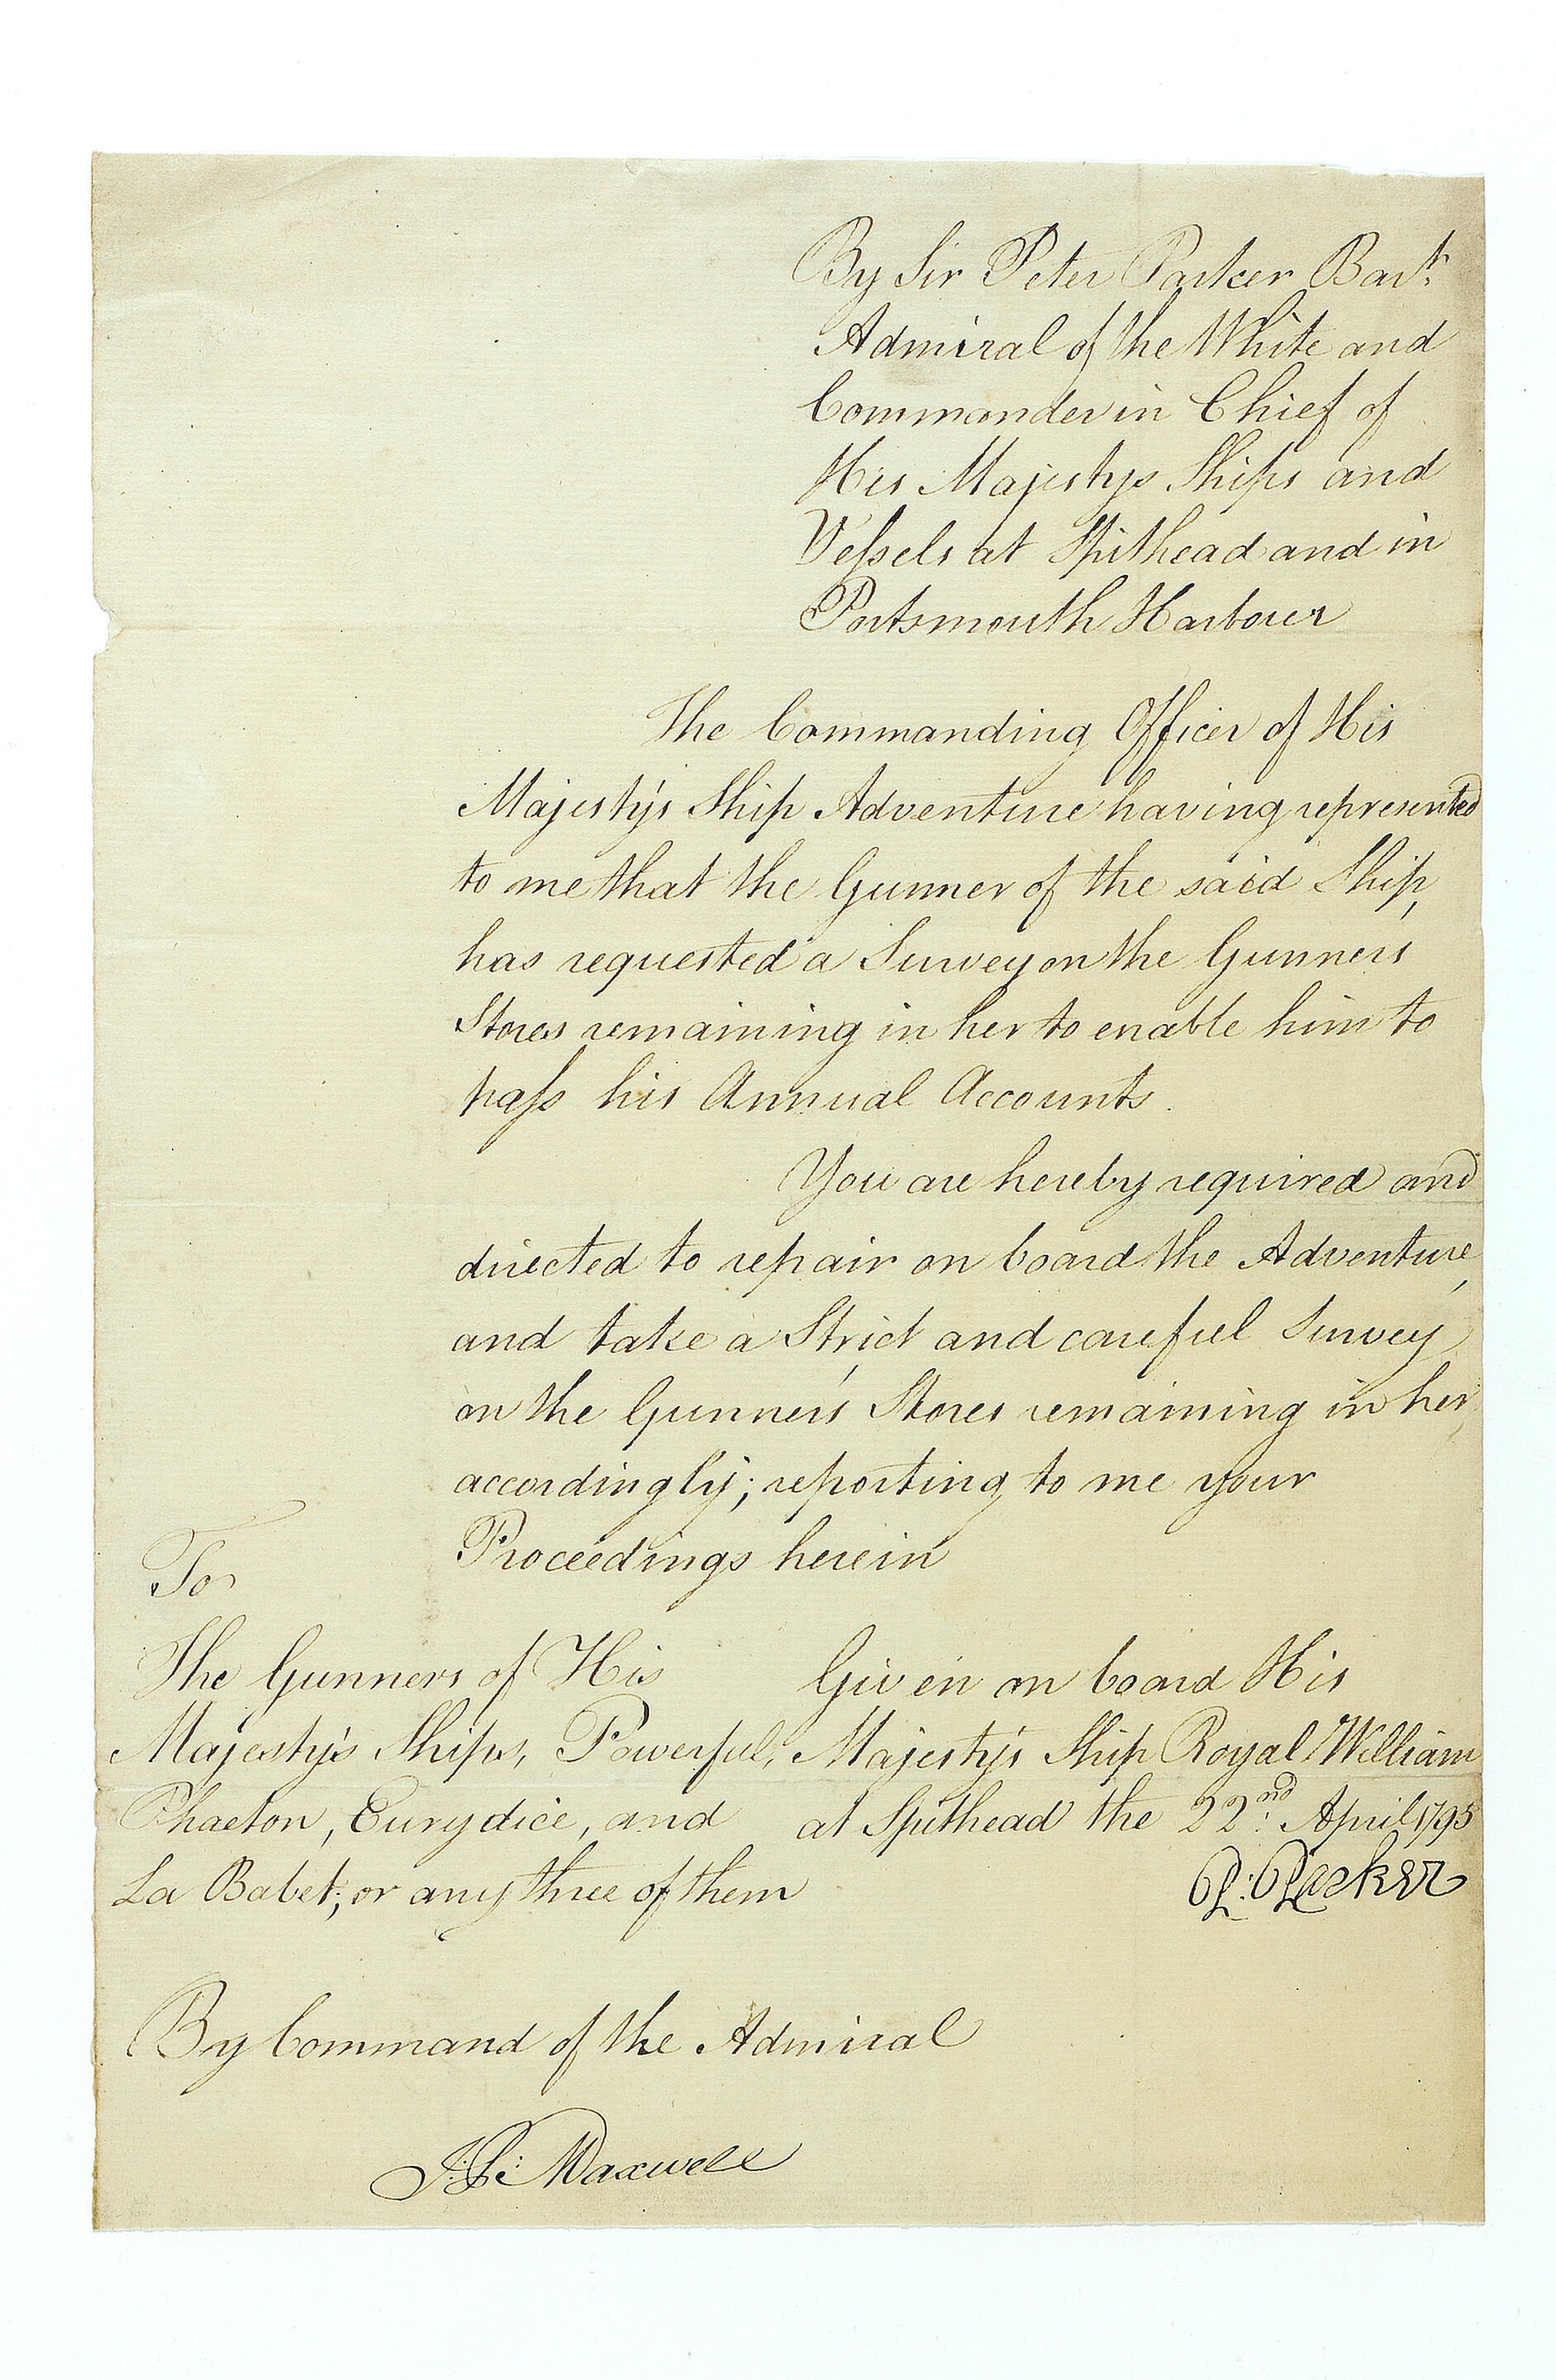 By Sir Peter Parker Bart.
Admiral of the White and
Commander in Chief of
His Majestys Ships and
Veſsels at Spithead and in
Portsmouth Harbour
The Commanding Officer of His
Majesty's Ship Adventure having represented
to me that the Gunner of the said Ship,
has requested a Survey on the Gunners
Stores remaining in her to enable him to
paſs his Annual Accounts.
You are hereby required and
directed to repair on board the Adventure,
and take a Strict and careful Survey
on the Gunner's Stores remaining in her,
accordingly; reporting to me your
Proceedings herein
To
The Gunners of His
Majesty's Ships, Powerful,
Phaeton, Eurydice, and
La Babet; or any three of them
Given on board His
Majesty's Ship Royal William
at Spithead the 22nd. April 1795
P: Parker
By Command of the Admiral
Maxwell